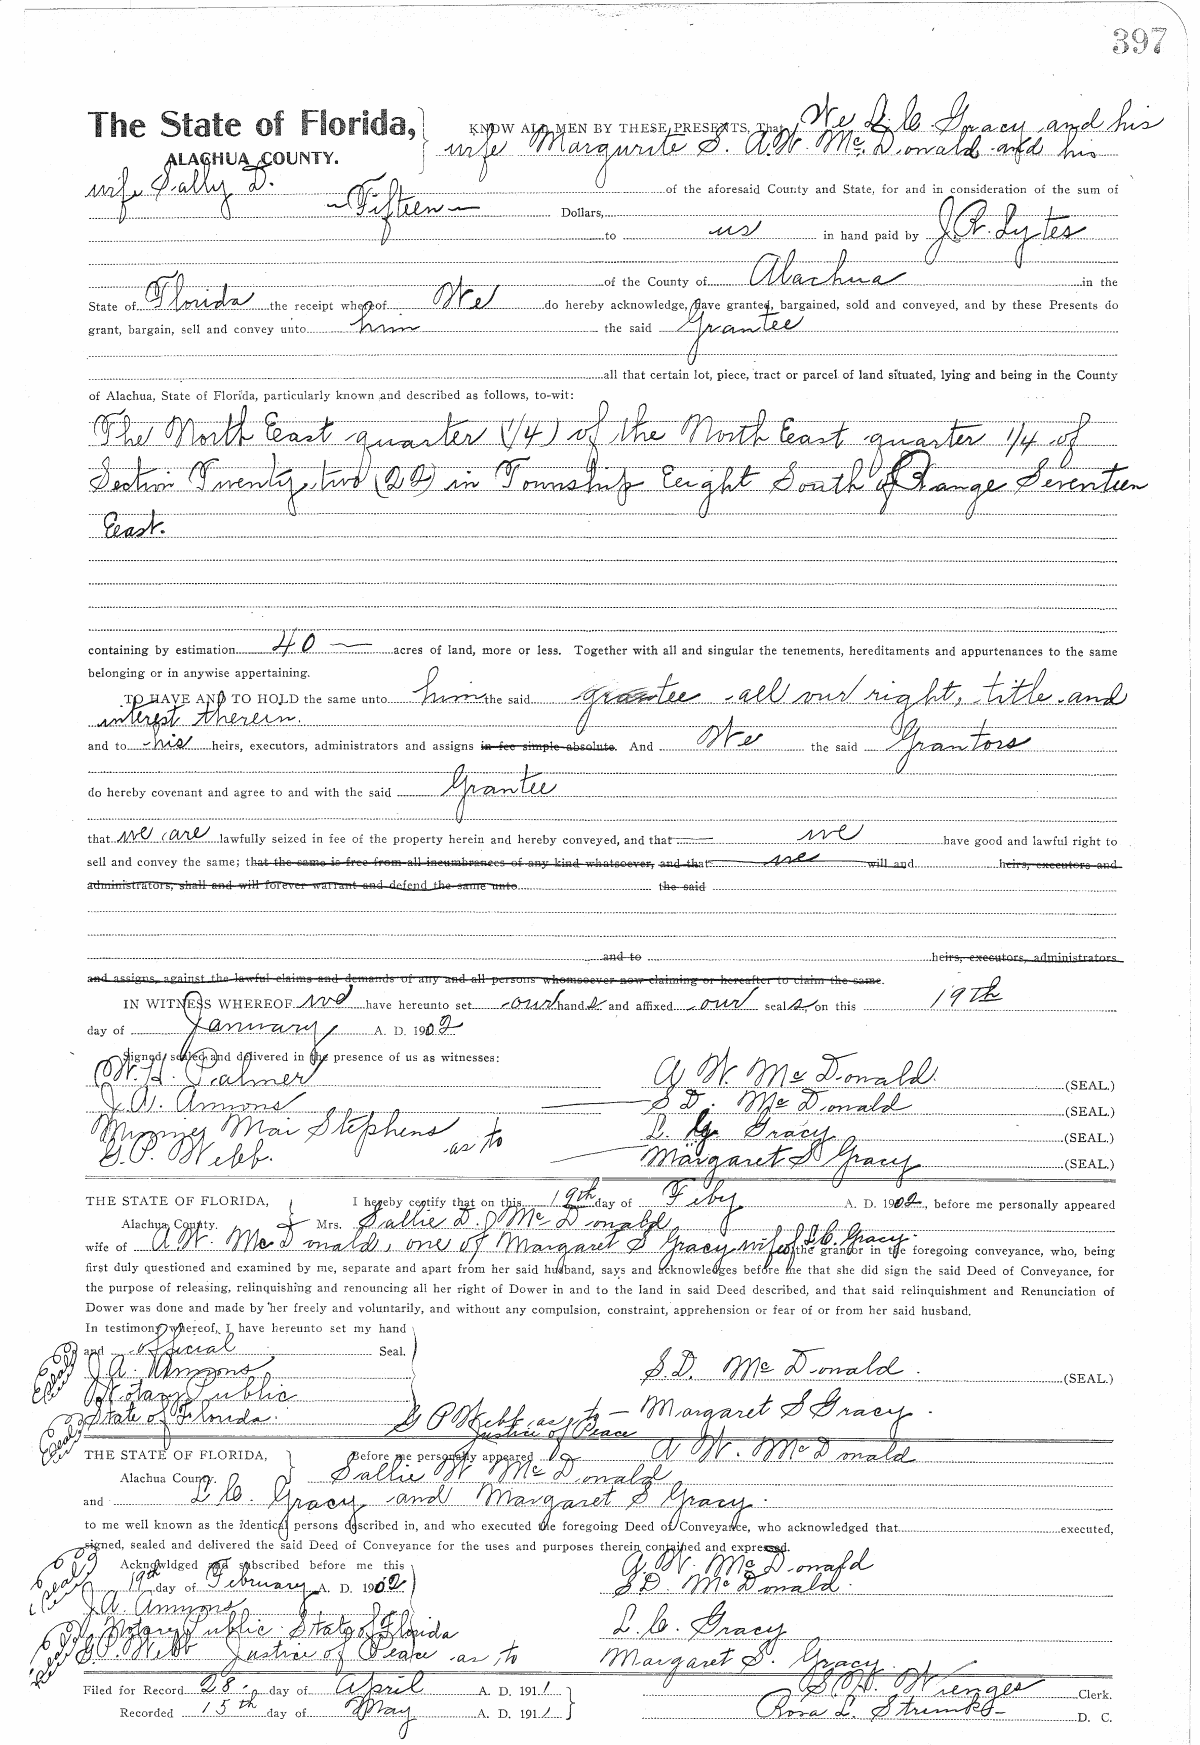 397
The State of Florida, KNOW ALL MEN BY THESE PRESENTS, That We L. C. Gracy and his
ALACHUA COUNTY. wife Margurite S. A.W. McDonald and his
wife Sally D. of the aforesaid County and State, for and in consideration of the sum of
Fifteen Dollars,
to us in hand paid by J.R. Lytes
of the County of Alachua in the
State of Florida the receipt whereof We do hereby acknowledge, have granted, bargained, sold and conveyed, and by these Presents do
grant, bargain, sell and convey unto him the said Grantee
all that certain lot, piece, tract or parcel of land situated, lying and being in the County
of Alachua, State of Florida, particularly known and described as follows, to-wit:
The North East quarter (1/4) of the North East quarter 1/4 of
Section Twenty two (22) in Township Eeight South of Range Seventeen
East.
containing by estimation 40 acres of land, more or less. Together with all and singular the tenements, hereditaments and appurtenances to the same
belonging or in anywise appertaining.
TO HAVE AND TO HOLD the same unto him the said grantee all our right, title and
interest therein.
and to his heirs, executors, administrators and assigns in fee simple absolute. And We the said Grantors
do hereby covenant and agree to and with the said Grantee
that we are lawfully seized in fee of the property herein and hereby conveyed, and that we have good and lawful right to
sell and convey the same; that the same is free from all incumbrances of any kind whatsoever, and that we will and heirs, executors and
administrators, shall and will forever warrant and defend the same unto the said
and to heirs, executors, administrators
and assigns, against the lawful claims and demands of any and all persons whomsoever now claiming or hereafter to claim the same.
IN WITNESS WHEREOF we have hereunto set our hands and affixed our seals on this 19th
day of January A. D. 1902
Signed, sealed and delivered in the presence of us as witnesses:
W. H. Palmer A W. McDonald (SEAL.)
J. A. Ammons S D. McDonald (SEAL.)
Mai Stephens L. C. Gracy (SEAL.)
G. P. Webb. as to Margaret S Gracy (SEAL.)
THE STATE OF FLORIDA, I hereby certify that on this 19th day of Feby A. D. 1902, before me personally appeared
Alachua County. Mrs. Sallie D. McDonald
wife of A W. McDonald, one of Margaret S Gracy wife of L.C. Gracy. the grantor in the foregoing conveyance, who, being
first duly questioned and examined by me, separate and apart from her said husband, says and acknowledges before me that she did sign the said Deed of Conveyance, for
the purpose of releasing, relinquishing and renouncing all her right of Dower in and to the land in said Deed described, and that said relinquishment and Renunciation of
Dower was done and made by her freely and voluntarily, and without any compulsion, constraint, apprehension or fear of or from her said husband.
In testimony whereof, I have hereunto set my hand
and official Seal.
J. A. Ammons S.D. McDonald (SEAL.)
Notary Public
State of Florida. G P Webb as to Margaret S Gracy.
Justice of Peace
THE STATE OF FLORIDA, Before me personally appeared A W. McDonald
Alachua County. Sallie W McDonald
and L C. Gracy and Margaret S Gracy.
to me well known as the identical persons described in, and who executed the foregoing Deed of Conveyance, who acknowledged that executed,
signed, sealed and delivered the said Deed of Conveyance for the uses and purposes therein contained and expressed.
Acknowldged and subscribed before me this A. W. McDonald
19th day of February A. D. 1902 S D. McDonald.
J. A. Ammons
Notary Public State of Florida L. C. Gracy
G.P. Webb Justice of Peace as to Margaret S. Gracy
Filed for Record 28. day of April A. D. 1911 S. H. Wienges Clerk.
Recorded 15th day of May A. D. 1911 Rosa L. D. C.